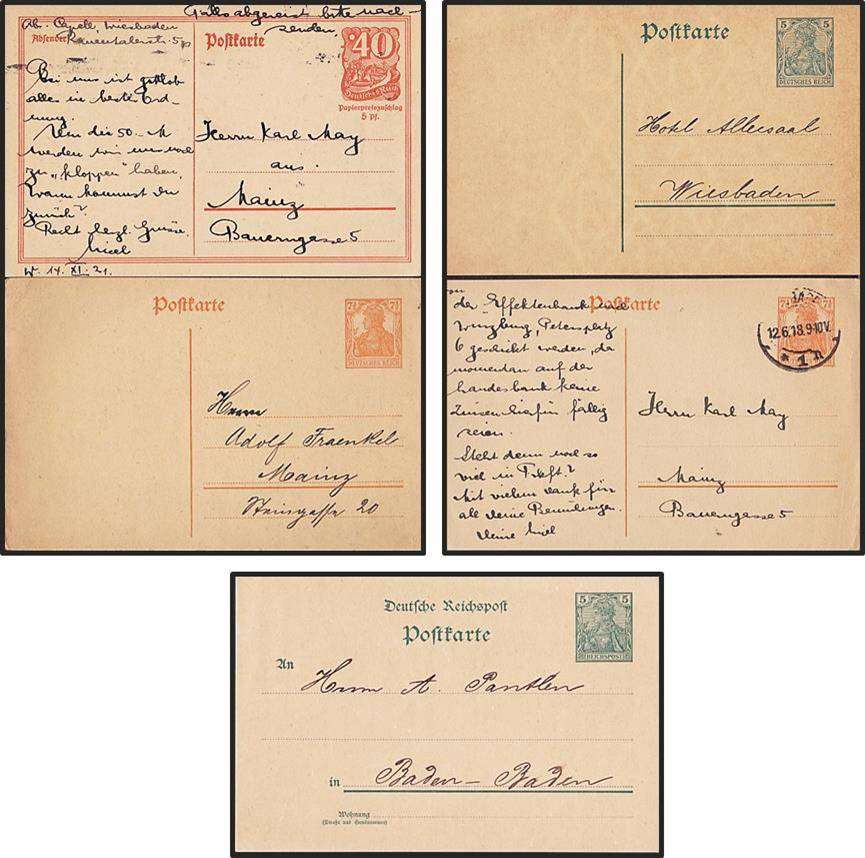 Falls abgereist bitte nach-
senden
Abs. Capell, Wiesbaden
Absender
Rauentalerstr. 5
Postkarte
40
Deutsches Reich
Papierpreiszuschlag
5 Pf.
Bei uns ist gottlob
alles in bester Ord-
nung.
Um die 50.- M
werden wir uns noch
zu „kloppen" haben.
Wann kommst du
zurück?
Recht herzl. Grüsse
W. 14. XI. 21.
Herrn Karl May
aus.
Mainz
Bauerngasse 5
Postkarte
5 5
DEUTSCHES REICH
Hotel Alleesaal
Wiesbaden
Postkarte
7½ 7½
DEUTSCHES REICH
Herrn
Adolf Fraenkel
Mainz
Steingasse 20
Postkarte
7½
12.6.18.9-10V.
* 1 n
der Effektenbank
Würzburg, Petersplatz
6 geschickt werden, da
momentan auf der
Landesbank keine
Zinsen hiefür fällig
seien.
Steht denn noch so
viel in
Mit vielem Dank für
all deine Bemühungen.
Deine
Herrn Karl May
Mainz
Bauerngasse 5
Deutsche Reichspost
Postkarte
5 5
REICHSPOST
An
Herrn A. Panthen
in Baden-Baden
Wohnung
(Straße und Hausnummer)